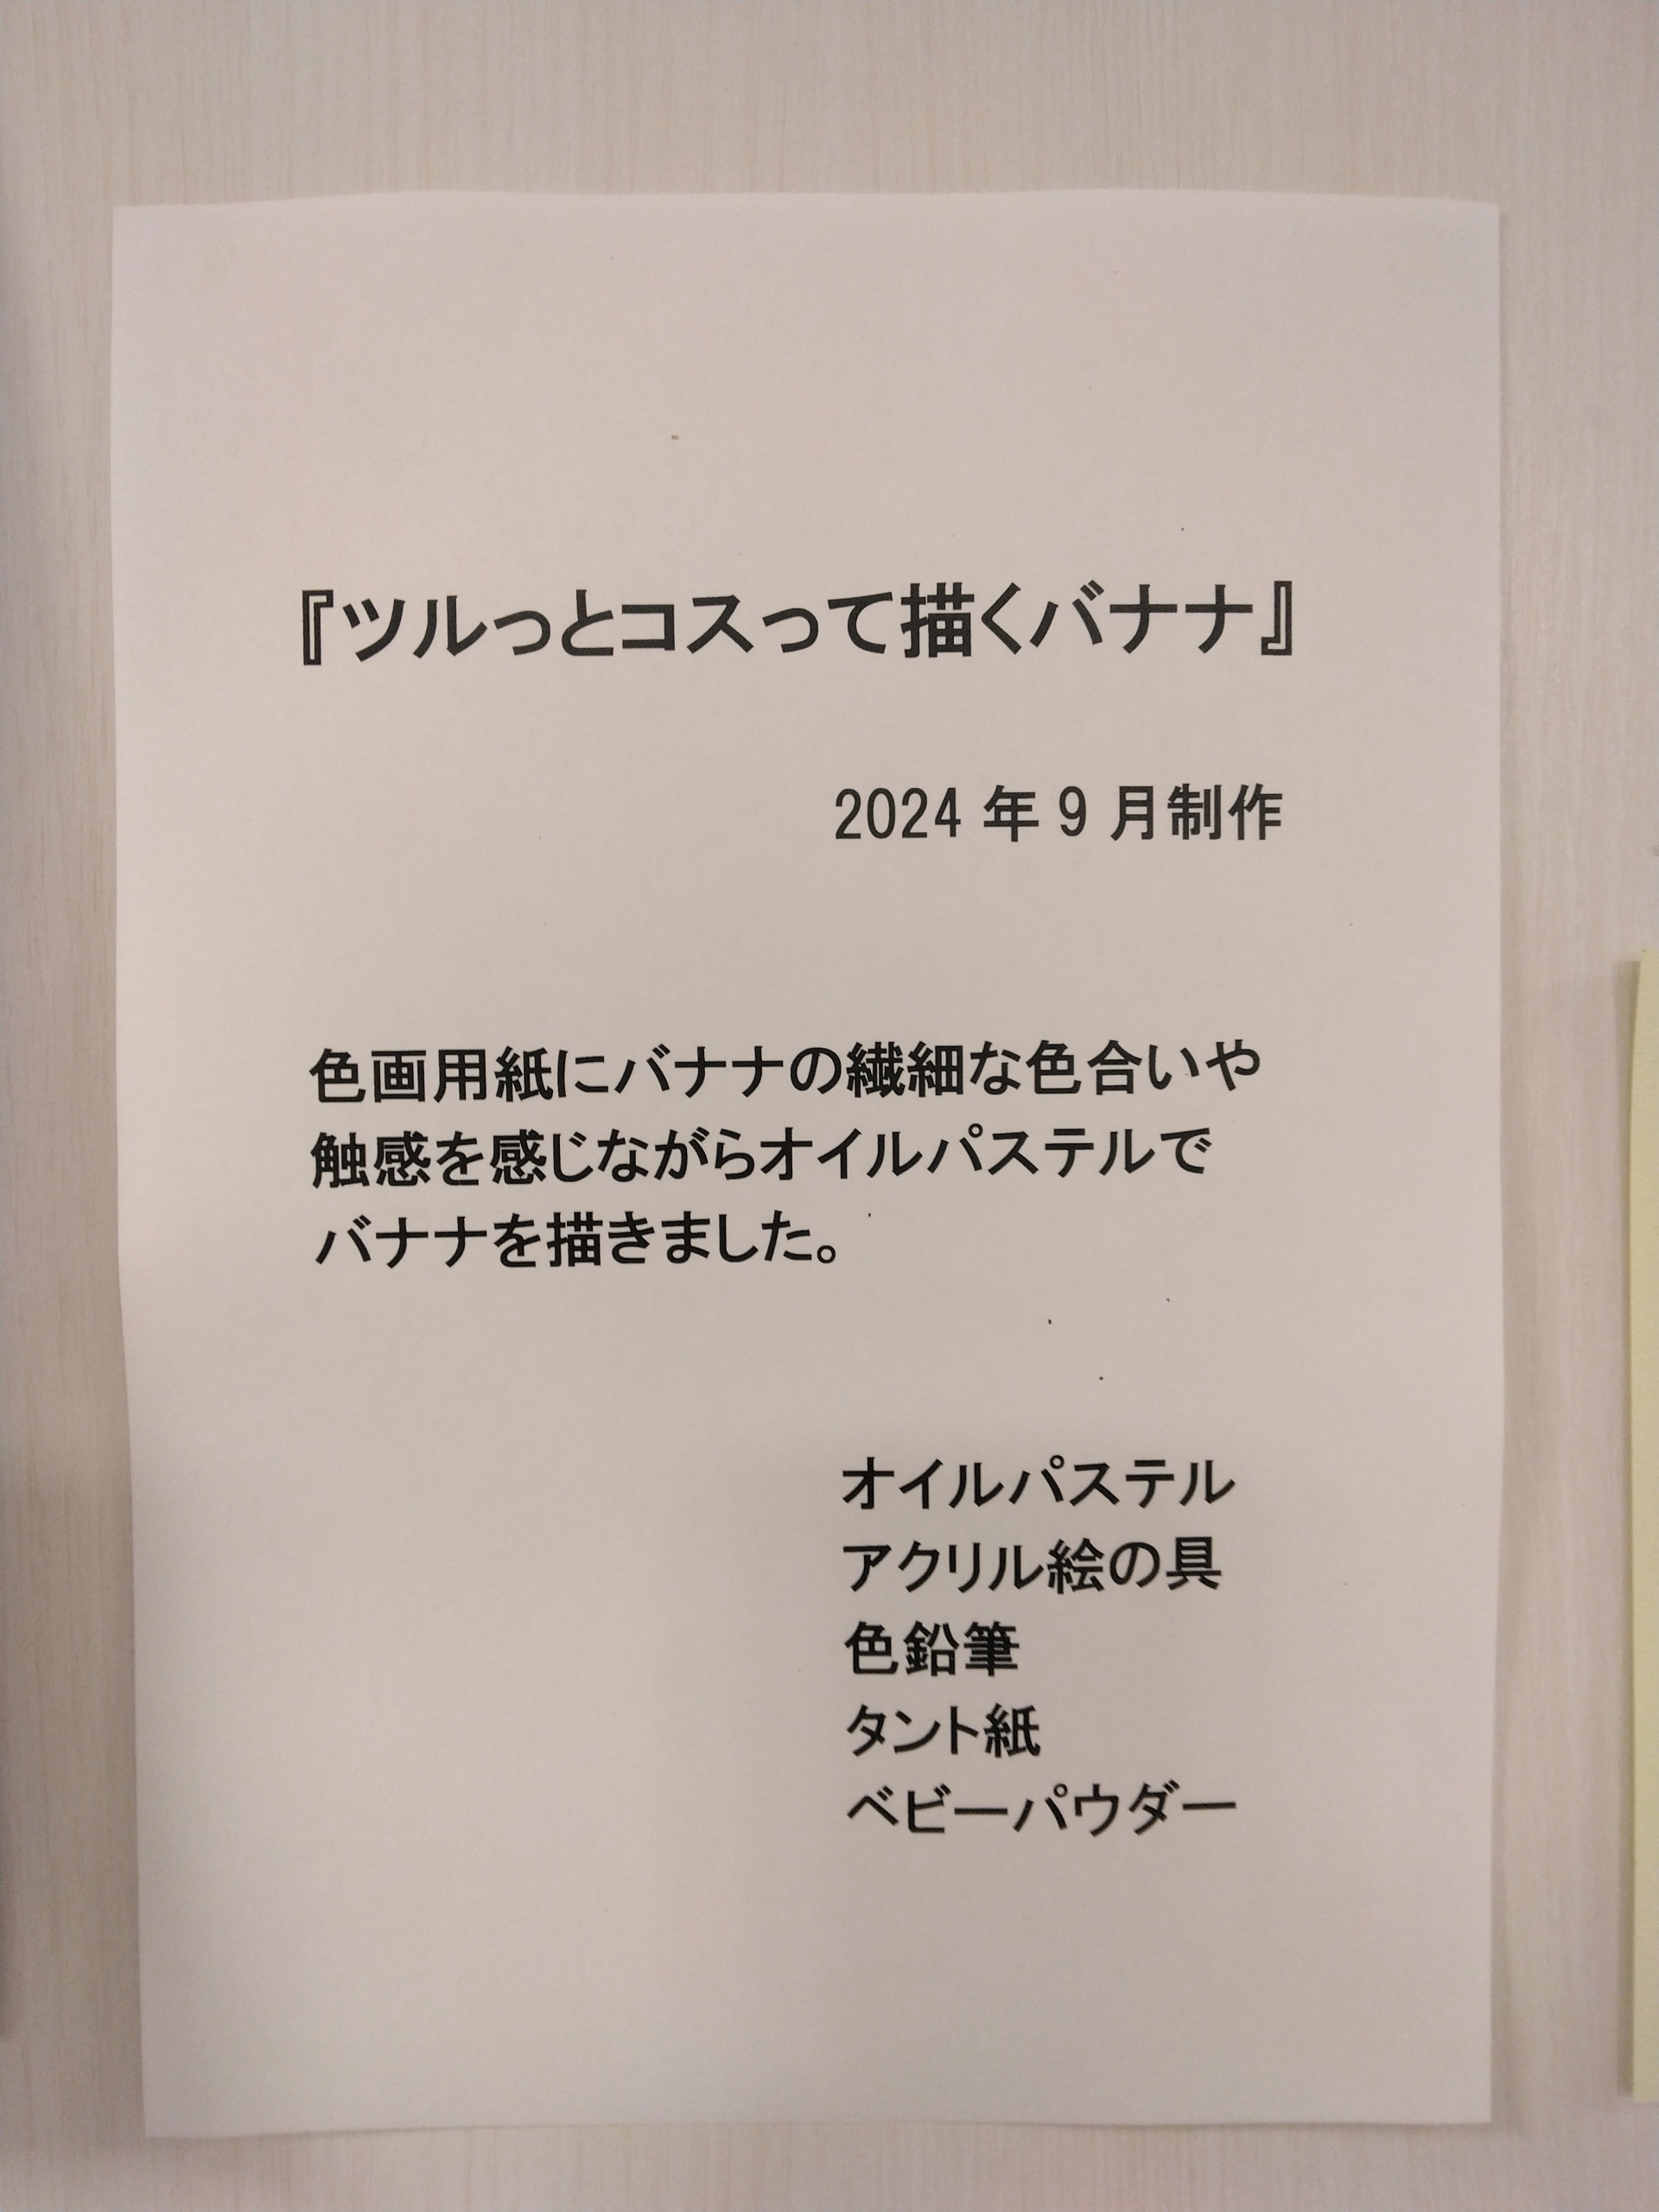 『ツルっとコスって描くバナナ』
2024 年 9 月制作
色画用紙にバナナの繊細な色合いや
触感を感じながらオイルパステルで
バナナを描きました。
オイルパステル
アクリル絵の具
色鉛筆
タント紙
ベビーパウダー